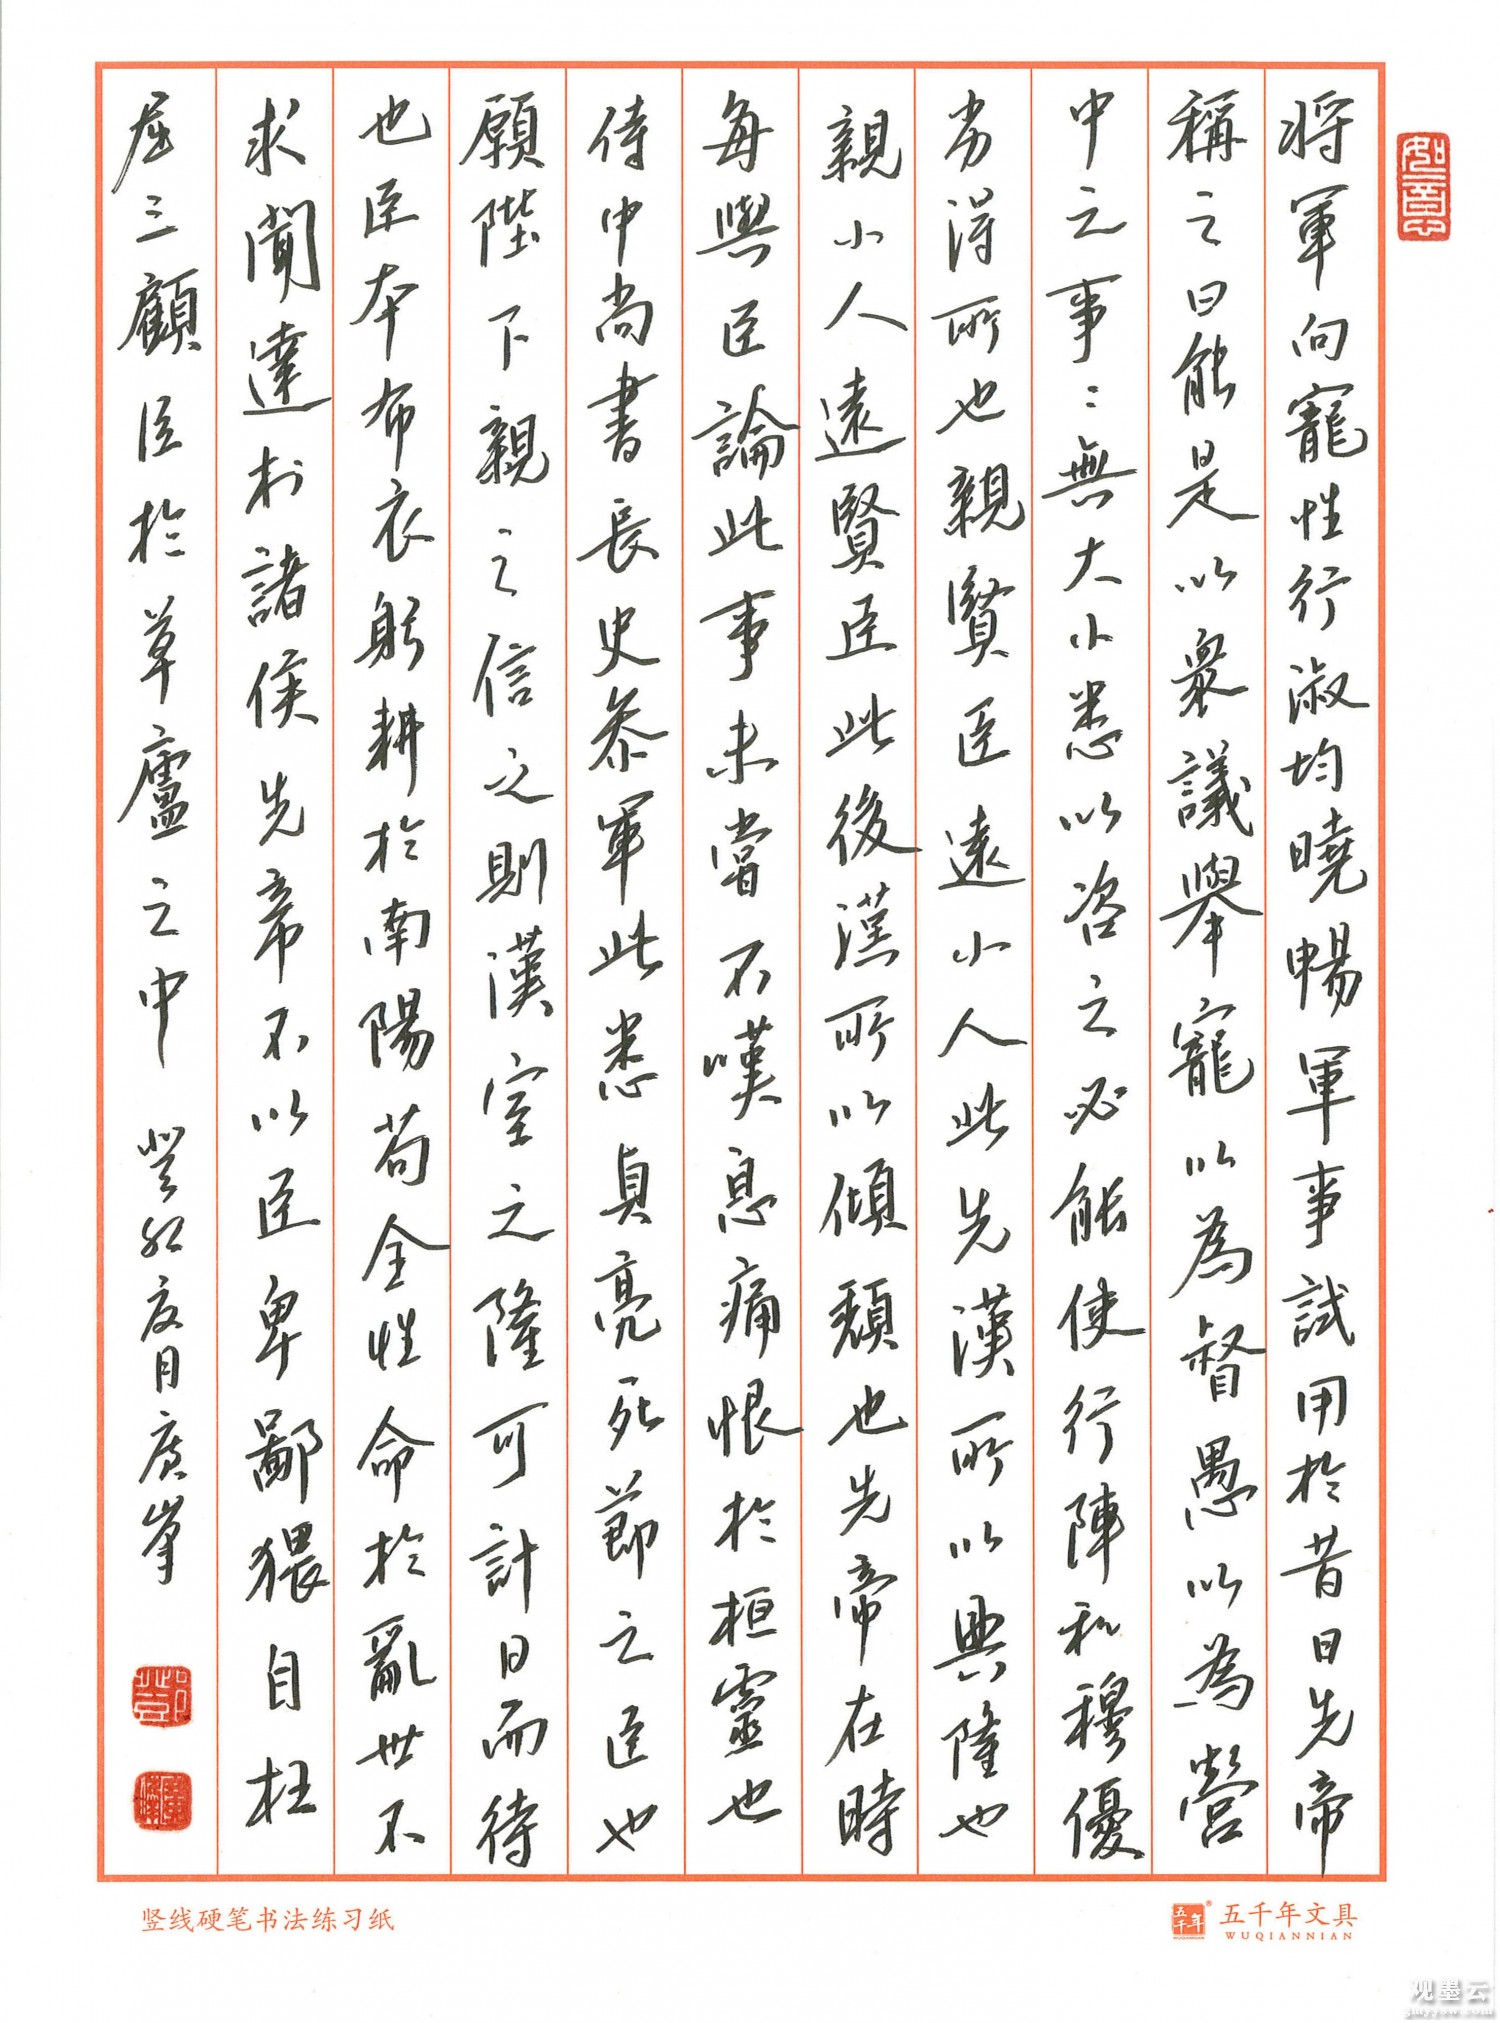 将軍向寵性行淑均曉暢軍事試用於昔日先帝
稱之曰能是以衆議舉寵以為督愚以為營
中之事〻無大小悉以咨之必能使行陣和穆優
劣得所也親賢臣遠小人此先漢所以興隆也
親小人遠賢臣此後漢所以傾頹也先帝在時
每與臣論此事未嘗不嘆息痛恨於桓靈也
侍中尚書長史參軍此悉貞亮死節之臣也
願陛下親之信之則漢室之隆可計日而待
也臣本布衣躬耕於南陽苟全性命於亂世不
求聞達於諸侯先帝不以臣卑鄙猥自枉
屈三顧臣於草廬之中 癸卯夏月廣峯
如意
竖线硬笔书法练习纸
五千年
五千年文具
WUQIANNIAN
观墨云
gmyyow.com